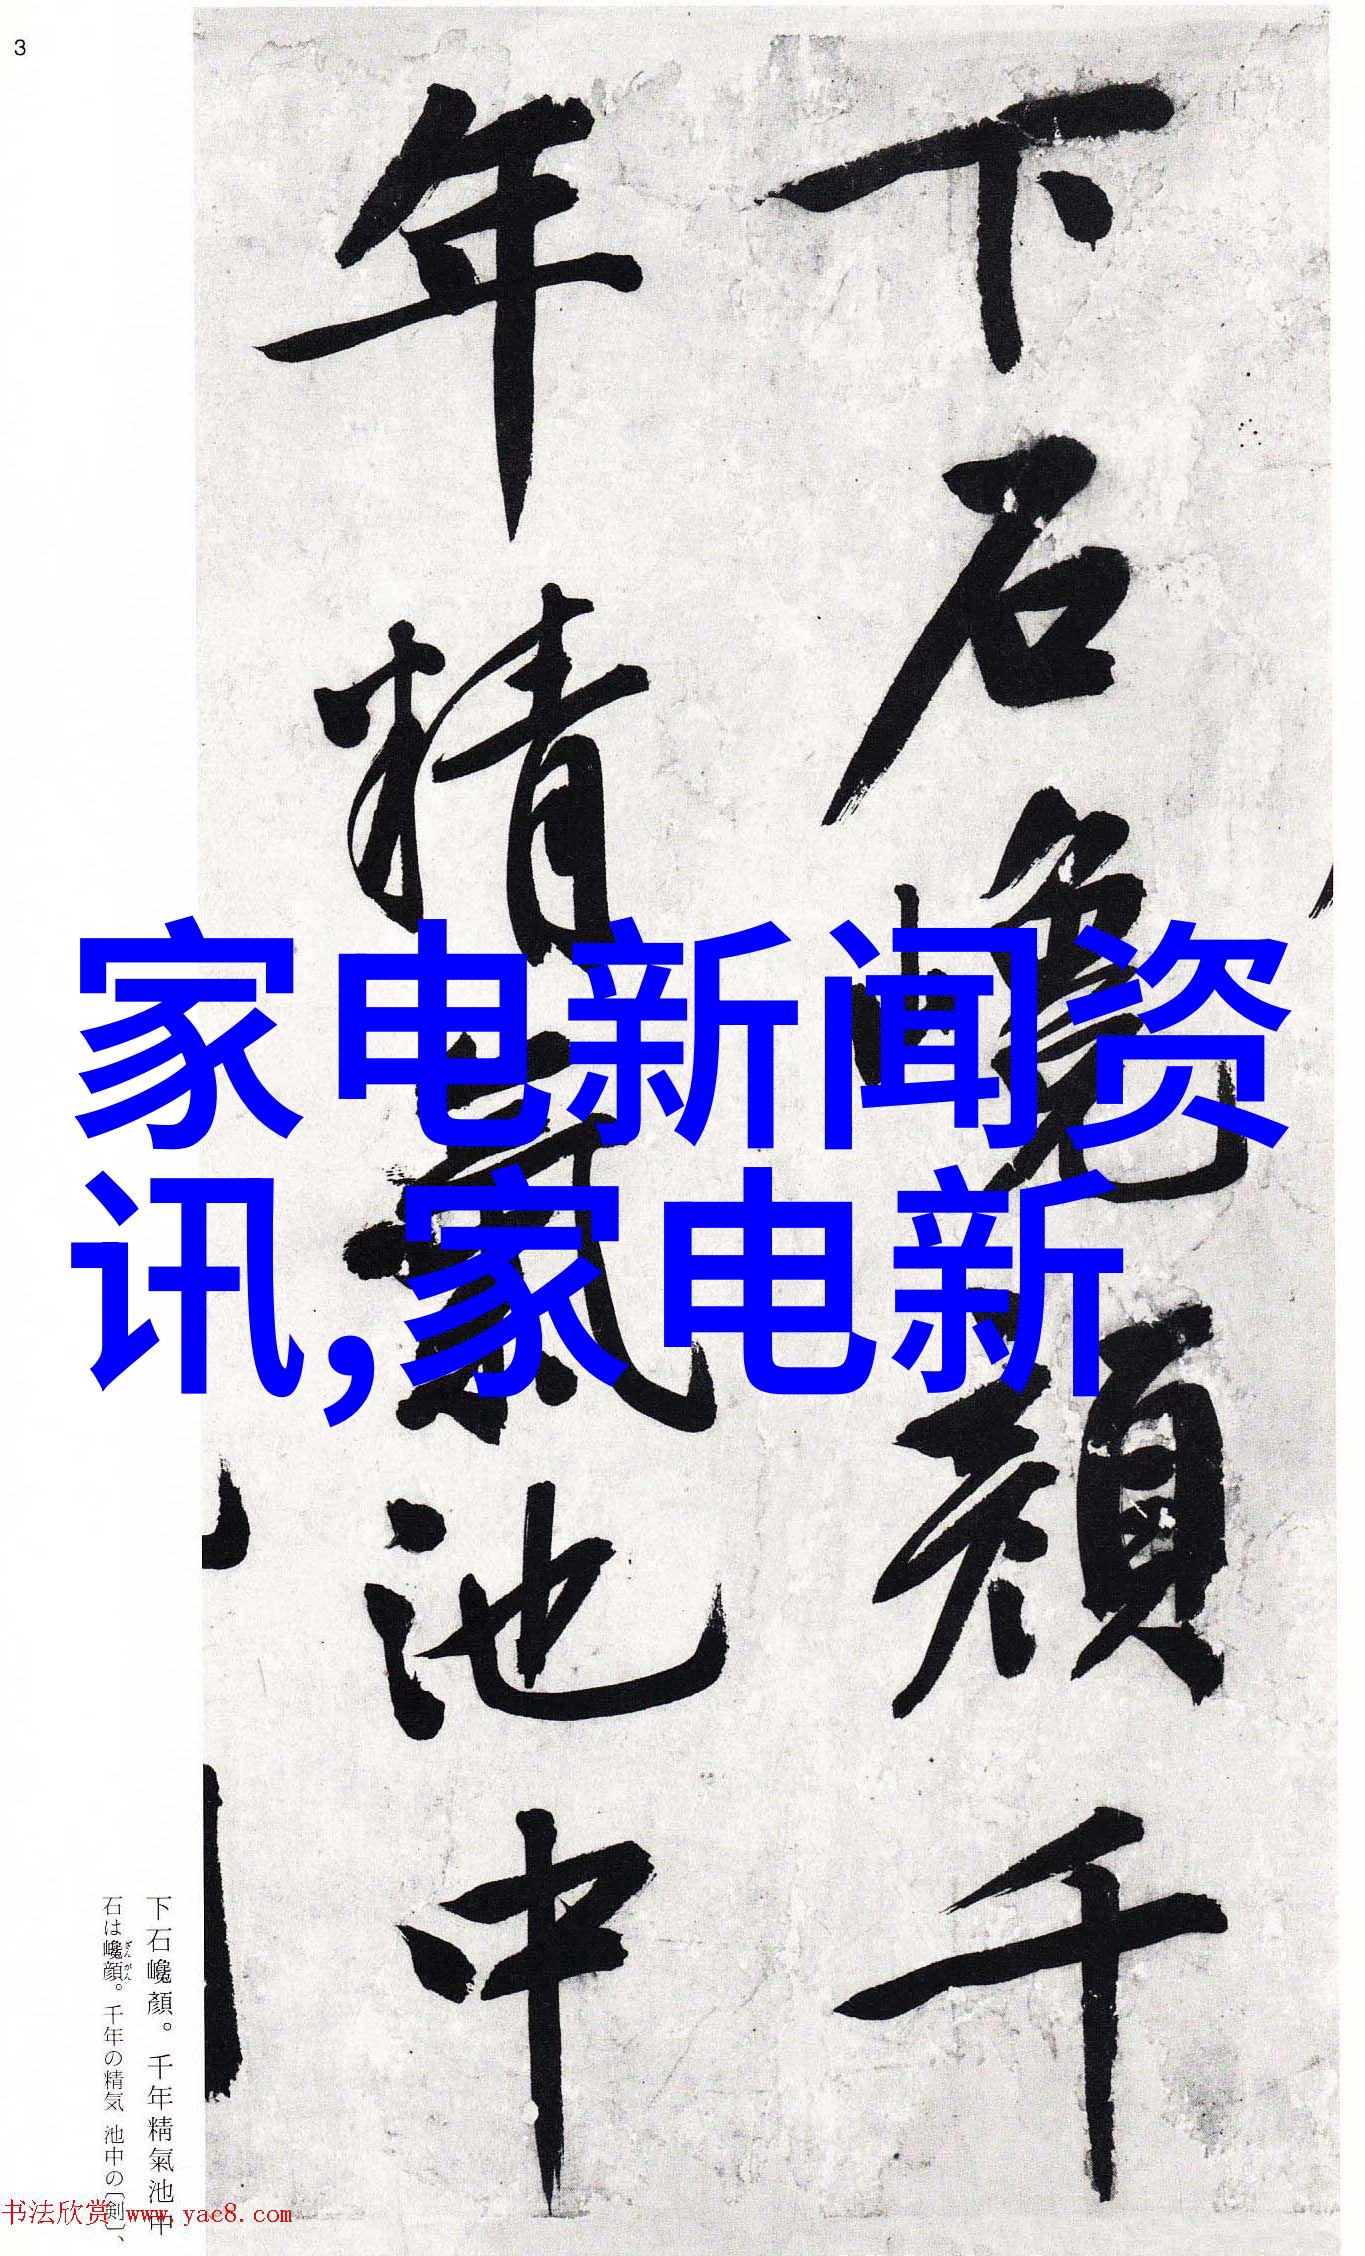 3
下石巉顏千
年精氣池中
家电新闻资
讯,家电新
下石巉顏。千年精氣池中
石は巉顔。千年の精気 池中の〔剣〕、
ざんがん
书法欣赏 www.yac8.com